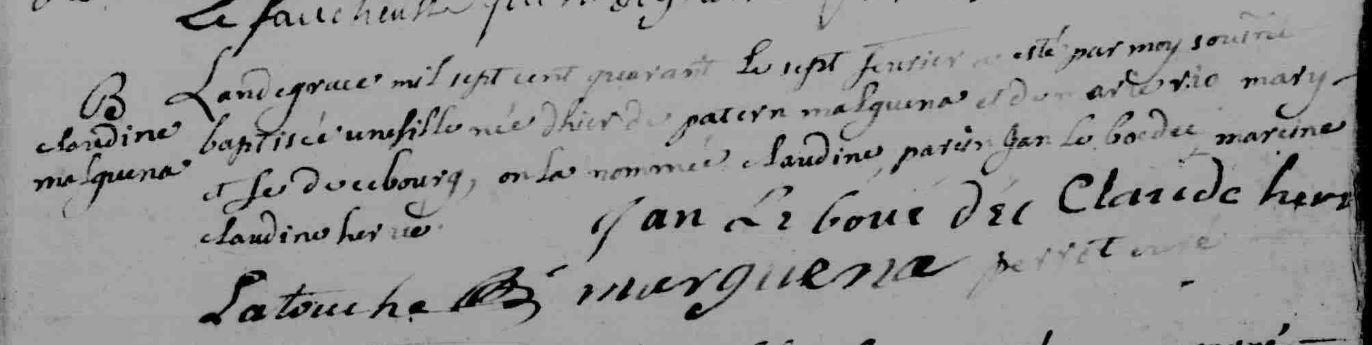 Le faucheuse
B
claudine
malquena
Landegrace mil sept cent quarant Le sept feurier a esté par moy sousne
baptisée unefille née dhier de patern malquena et de marie rio mary
et fe de cebourg, on la nommée claudine parein Jan Le boedec mareine
claudine herve
Jan Le boué déc Claude herv
Latouche merguena perret curé